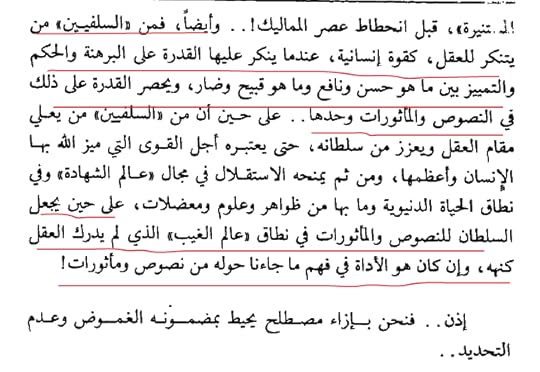 المستنيرة»، قبل انحطاط عصر المماليك!.. وأيضاً، فمن «السلفيين» من
يتنكر للعقل، كقوة إنسانية، عندما ينكر عليها القدرة على البرهنة والحكم
والتمييز بين ما هو حسن ونافع وما هو قبيح وضار، ويحصر القدرة على ذلك
في النصوص والمأثورات وحدها.. على حين أن من «السلفيين» من يعلي
مقام العقل ويعزز من سلطانه، حتى يعتبره أجل القوى التي ميز الله بها
الإنسان وأعظمها، ومن ثم يمنحه الاستقلال في مجال «عالم الشهادة» وفي
نطاق الحياة الدنيوية وما بها من ظواهر وعلوم ومعضلات، على حين يجعل
السلطان للنصوص والمأثورات في نطاق «عالم الغيب» الذي لم يدرك العقل
كنهه، وإن كان هو الأداة في فهم ما جاءنا حوله من نصوص ومأثورات!
إذن.. فنحن بإزاء مصطلح يحيط بمضمونه الغموض وعدم
التحديد..